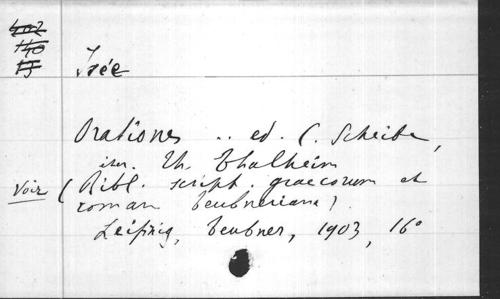 402
140
15
Isée
Orationes .. ed. C. Scheibe,
iter. Th. Thalheim
voir (Bibl. script. graecorum et
roman teubneriana)
Leipzig, Teubner, 1903, 16°